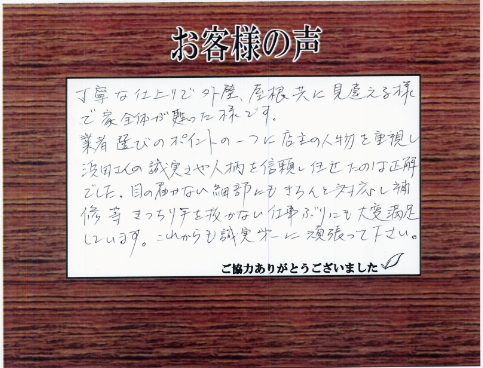 お客様の声
丁寧な仕上りで外壁、屋根共に見違える様
で家全体が甦った様です。
業者選びのポイントの一つに店主の人物を重視し
浜田さんの誠実さや人柄を信頼し任せたのは正解
でした。目の届かない細部にもきちんと対応し補
修等きっちり手を抜かない仕事ぶりにも大変満足
しています。これからも誠実第一に頑張って下さい。
ご協力ありがとうございました